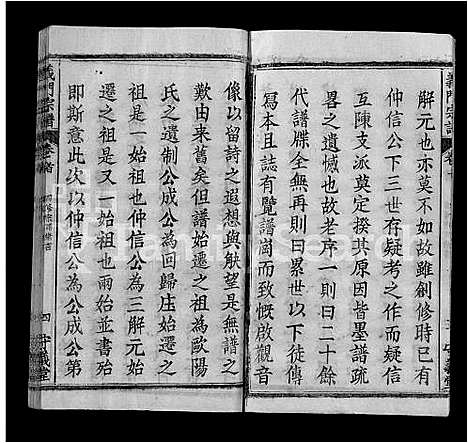 義門宗譜
解元也亦莫不如故雖創修時已有
仲信公下三世存疑考之作而疑信
互陳支派莫定揆其原因皆墨譜疏
畧之遺憾也故老序一則曰二十餘
代譜牒全無再則曰累世以下徒傳
冩本且有覽譜崗而致慨啟觀音
像以留詩之遐想與觖望是無譜之
歎由來舊矣但譜始遷之祖歐陽
氏之遺制公成公為回歸庄始遷之
祖是一始祖也仲信公為三解元始
遷之祖是又一始祖也兩始並書殆
即斯意此次以仲信公為公成公第
義門宗譜
四
守義堂